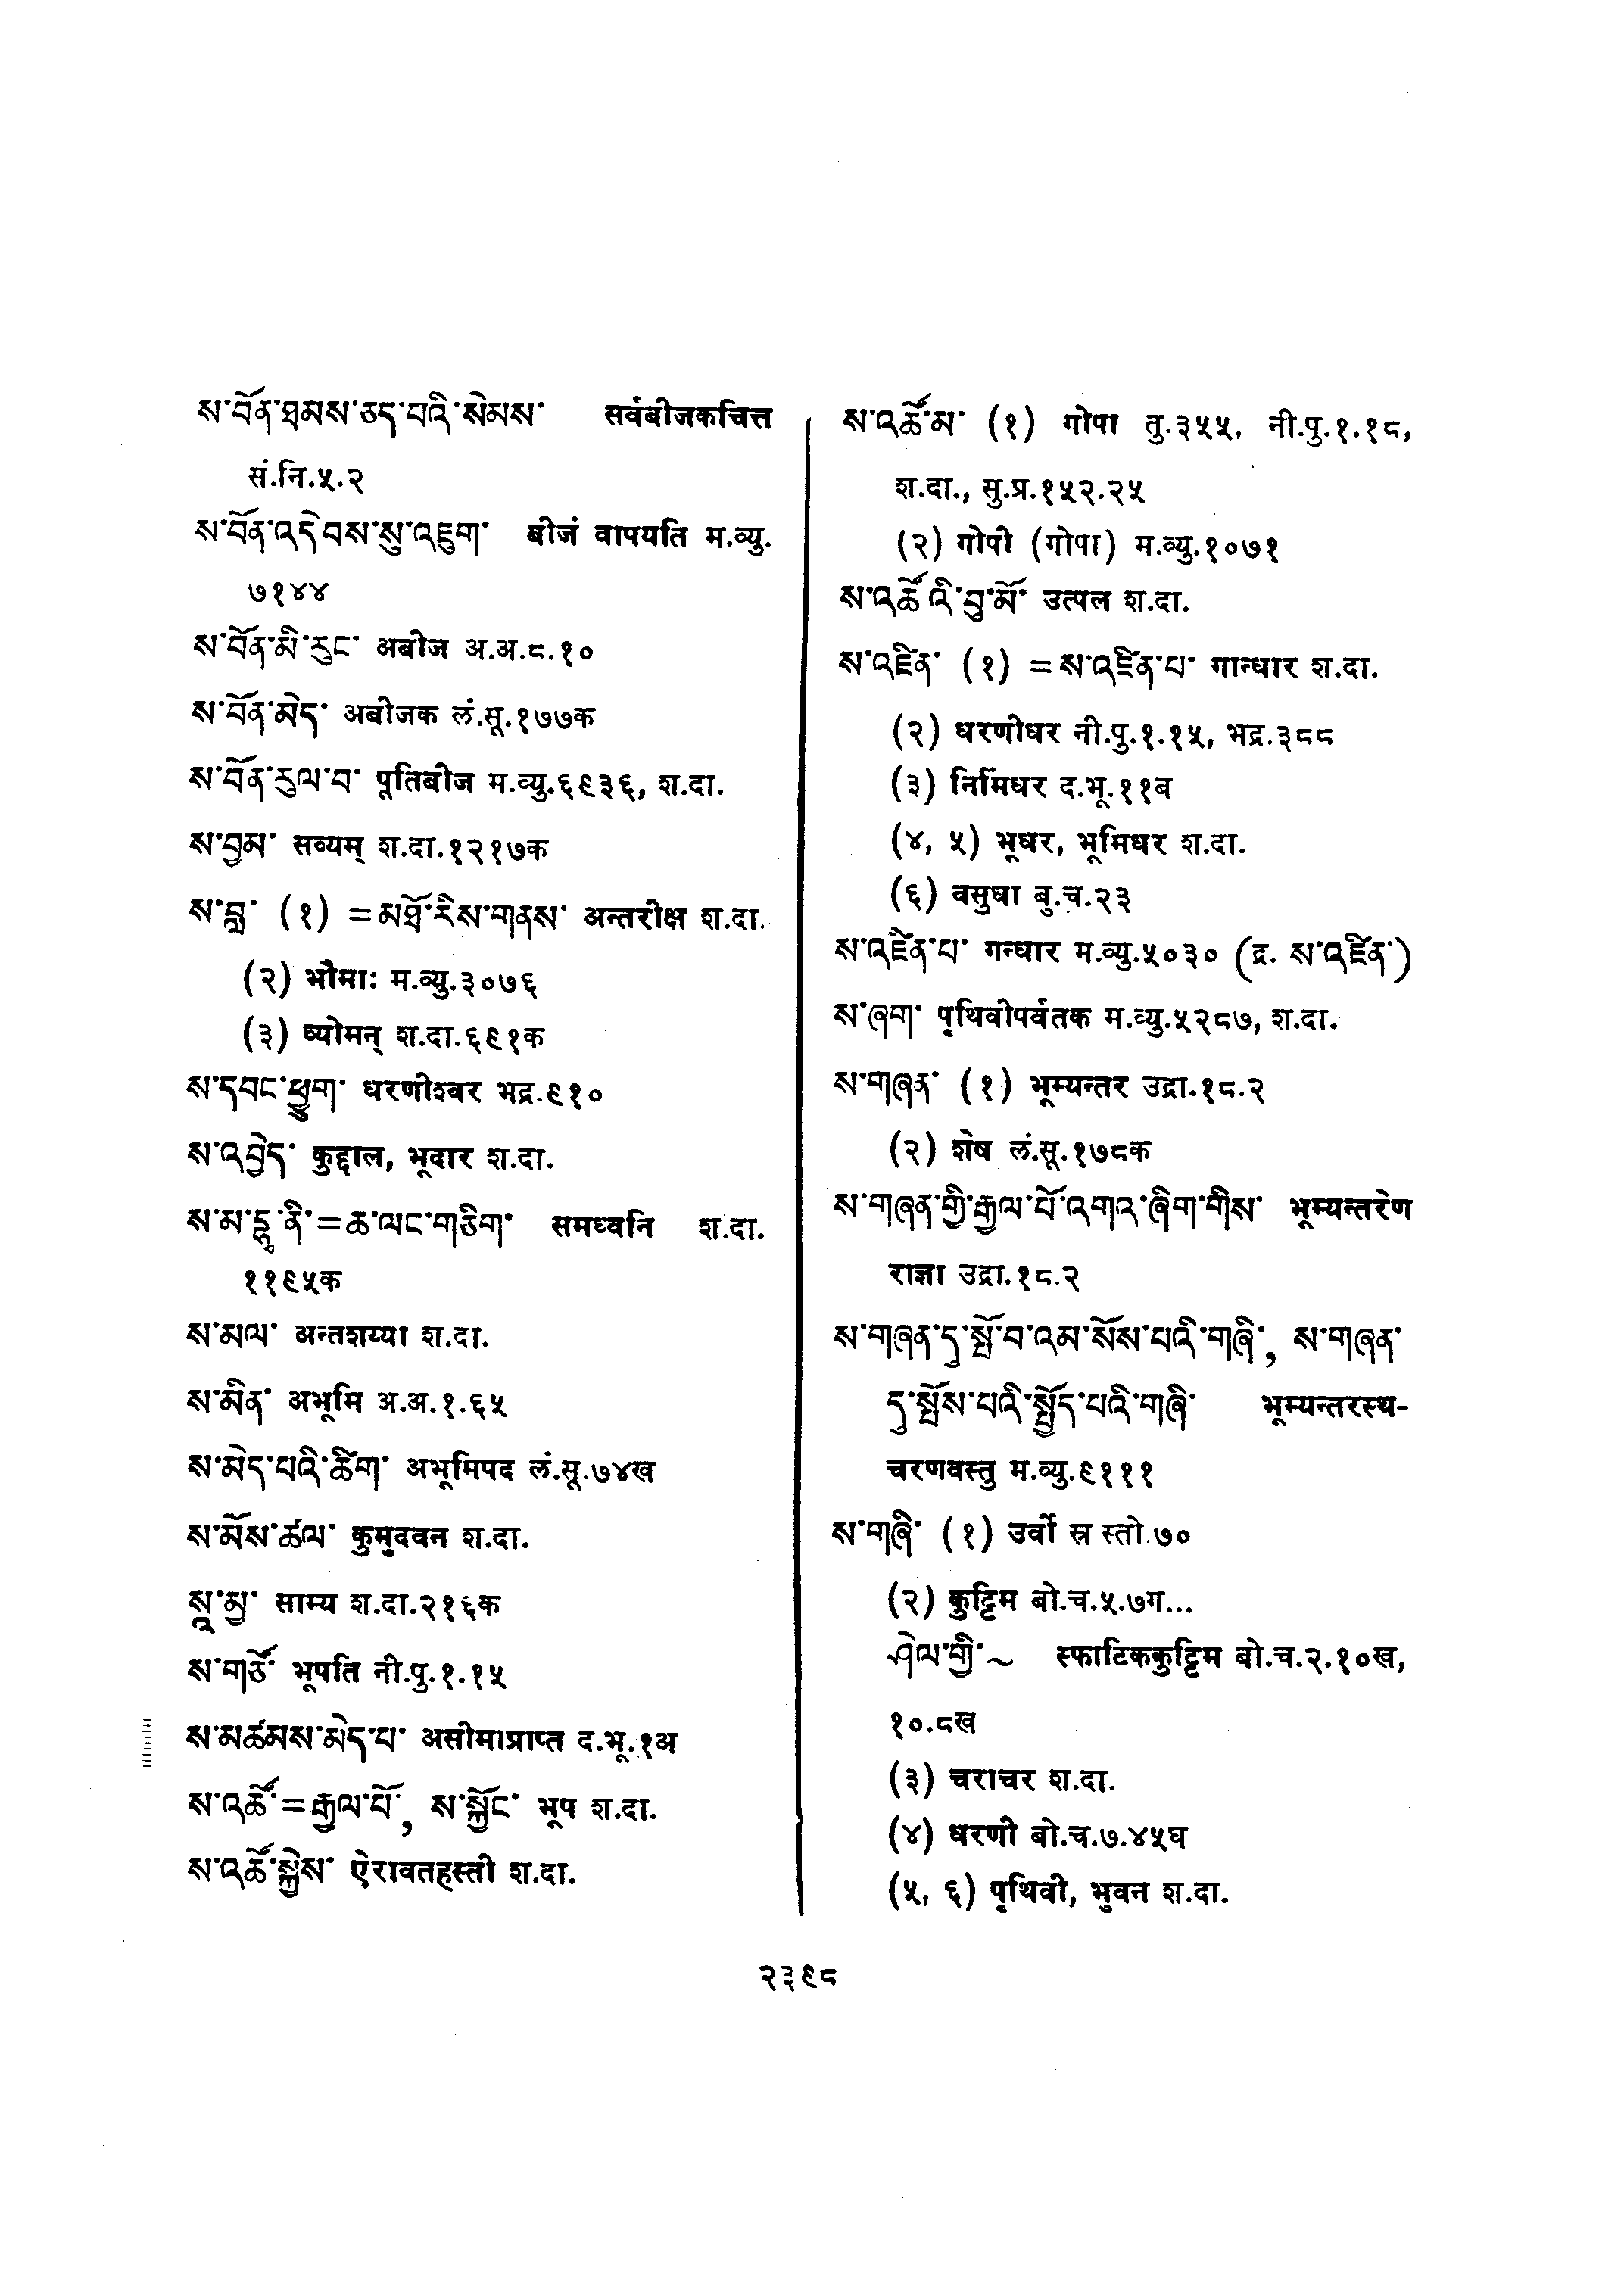 ས་བོན་ཐམས་ཅད་པའི་སེམས་ सर्वबीजकचित्त
सं.नि.५.२
ས་བོན་འདེབས་སུ་འཇུག་ बीजं वापयति म.व्यु.
७१४४
ས་བོན་མི་རུང་ अबीज अ.अ.८.१०
ས་བོན་མེད་ अबीजक लं.सू.१७७क
ས་བོན་རུལ་བ་ पूतिबीज म.व्यु.६९३६, श.दा.
ས་བྱམ་ सव्यम् श.दा.१२१७क
ས་བླ་ (१) =མཐོ་རིས་གནས་ अन्तरीक्ष श.दा.
(२) भौमाः म.व्यु.३०७६
(३) व्योमन् श.दा.६९१क
ས་དབང་ཕྱུག་ धरणीश्वर भद्र.९१०
ས་འབྱེད་ कुद्दाल, भूदार श.दा.
ས་མ་དྷྭ་ནི་=ཆ་ལང་གཅིག་ समध्वनि श.दा.
११९५क
ས་མལ་ अन्तशय्या श.दा.
ས་མིན་ अभूमि अ.अ.१.६५
ས་མེད་པའི་ཚིག་ अभूमिपद लं.सू.७४ख
ས་མོས་ཚལ་ कुमुदवन श.दा.
སཱ་མྱ་ साम्य श.दा.२१६क
ས་གཙོ་ भूपति नी.पु.१.१५
ས་མཚམས་མེད་པ་ असीमाप्राप्त द.भू.१अ
ས་འཚོ་=རྒྱལ་པོ་, ས་སྐྱོང་ भूप श.दा.
ས་འཚོ་སྐྱེས་ ऐरावतहस्ती श.दा.
ས་འཚོ་མ་ (१) गोपा तु.३५५, नी.पु.१.१८,
श.दा., सु.प्र.१५२.२५
(२) गोपी (गोपा) म.व्यु.१०७१
ས་འཚོའི་བུ་མོ་ उत्पल श.दा.
ས་འཛིན་ (१) =ས་འཛིན་པ་ गान्धार श.दा.
(२) धरणीधर नी.पु.१.१५, भद्र.३८८
(३) निमिंधर द.भू.११ब
(४, ५) भूधर, भूमिधर श.दा.
(६) वसुधा बु.च.२३
ས་འཛིན་པ་ गन्धार म.व्यु.५०३० (द्र. ས་འཛིན་)
ས་ཞག་ पृथिवीपर्वतक म.व्यु.५२८७, श.दा.
ས་གཞན་ (१) भूम्यन्तर उद्रा.१८.२
(२) शेष लं.सू.१७८क
ས་གཞན་གྱི་རྒྱལ་པོ་འགའ་ཞིག་གིས་ भूम्यन्तरेण
राज्ञा उद्रा.१८.२
ས་གཞན་དུ་སྤོ་བ་འམ་སོས་པའི་གཞི་, ས་གཞན་
དུ་སྤོས་པའི་སྤྱོད་པའི་གཞི་ भूम्यन्तरस्थ-
चरणवस्तु म.व्यु.९१११
ས་གཞི་ (१) उर्वी स्र.स्तो.७०
(२) कुट्टिम बो.च.५.७ग...
ཤེལ་གྱི་~ स्फाटिककुट्टिम बो.च.२.१०ख,
१०.८ख
(३) चराचर श.दा.
(४) धरणी बो.च.७.४५घ
(५, ६) पृथिवी, भुवन श.दा.
२३९८